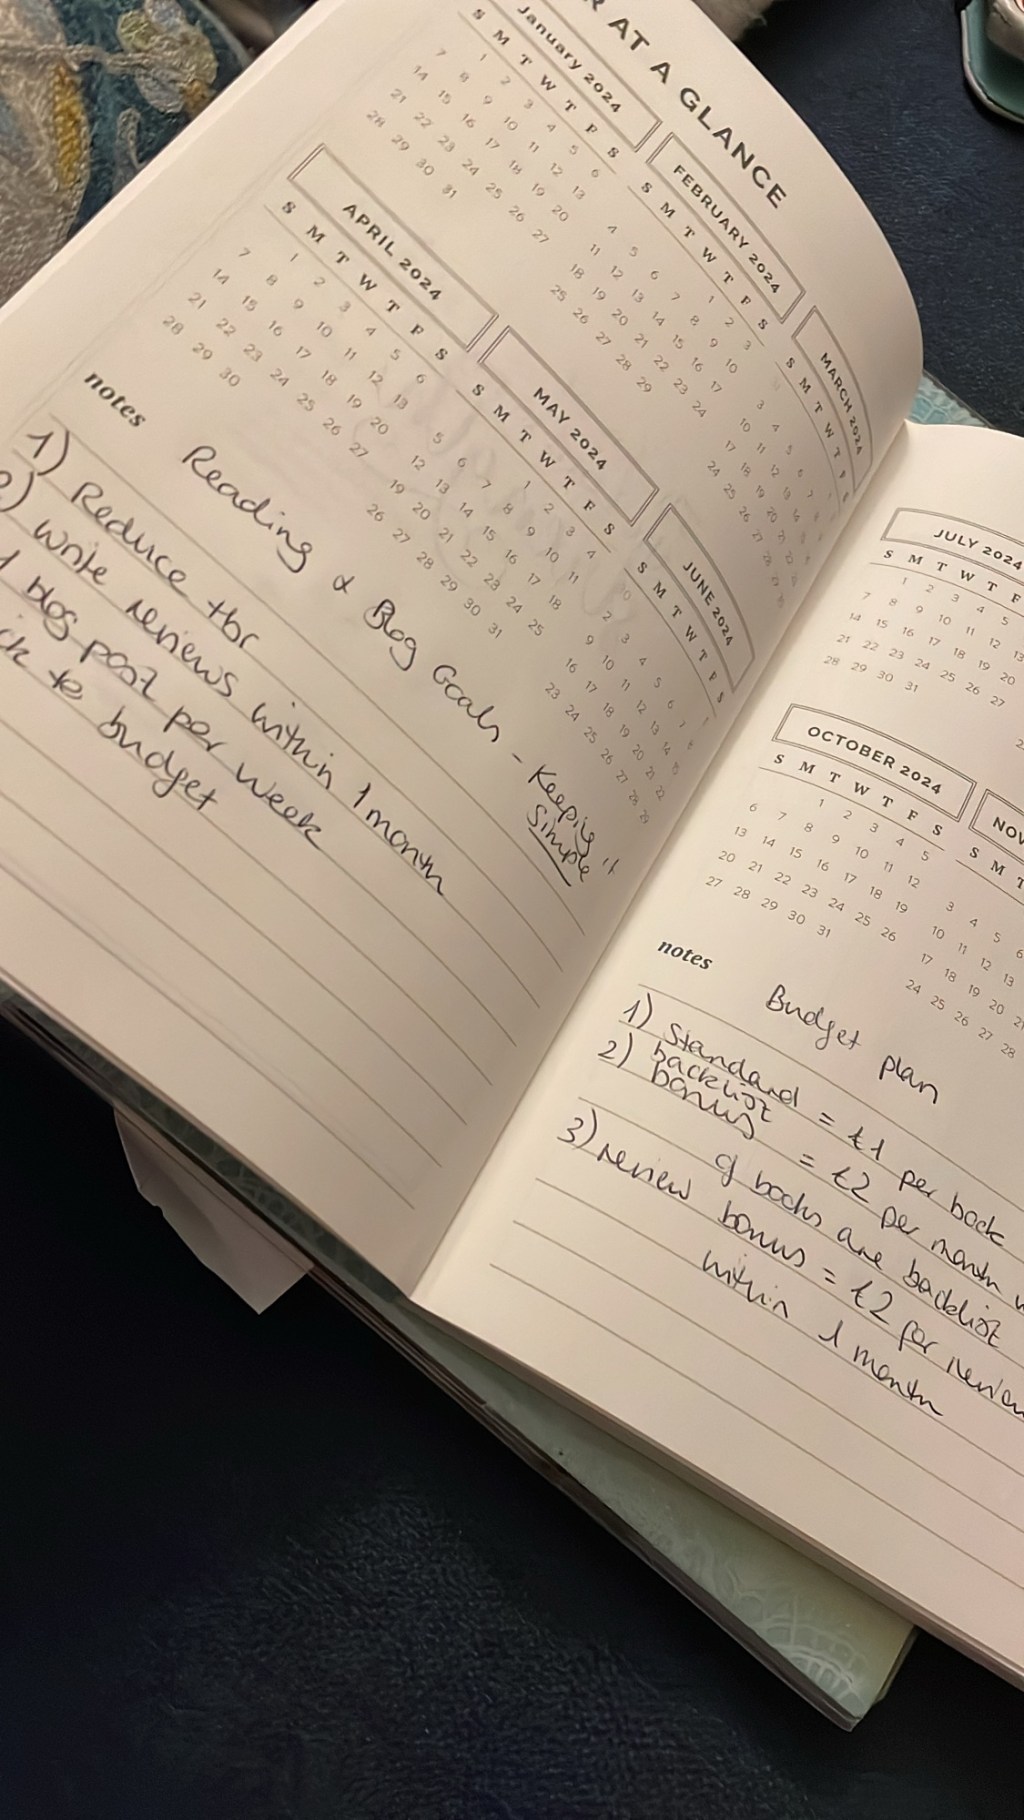 R AT A GLANCE
January 2024
S M T W T F S
1 2 3 4 5 6
7 8 9 10 11 12 13
14 15 16 17 18 19 20
21 22 23 24 25 26 27
28 29 30 31
FEBRUARY 2024
S M T W T F S
1 2 3
4 5 6 7 8 9 10
11 12 13 14 15 16 17
18 19 20 21 22 23 24
25 26 27 28 29
MARCH 2024
S M T W T F S
3 4 5 6 7
10 11 12 13
17 18 19 20
24 25 26 27 28 29
APRIL 2024
S M T W T F S
1 2 3 4 5 6
7 8 9 10 11 12 13
14 15 16 17 18 19 20
21 22 23 24 25 26 27
28 29 30
MAY 2024
S M T W T F S
1 2 3 4
5 6 7 8 9 10 11
12 13 14 15 16 17 18
19 20 21 22 23 24 25
26 27 28 29 30 31
JUNE 2024
S M T W T F S
2 3 4 5 6 7
9 10 11 12 13 14 15
16 17 18 19 20 21 22
23 24 25 26 27 28 29
notes
Reading & Blog Goals - Keeping it
Simple
1) Reduce tbr
2) write reviews within 1 month
1 blog post per week
to budget
JULY 2024
S M T W T F
1 2 3 4 5
7 8 9 10 11 12 13
14 15 16 17 18 19 20
21 22 23 24 25 26 27
28 29 30 31
OCTOBER 2024
S M T W T F S
1 2 3 4 5
6 7 8 9 10 11 12
13 14 15 16 17 18 19
20 21 22 23 24 25 26
27 28 29 30 31
NOV
S M T
3 4 5 6
10 11 12 13
17 18 19 20 21
24 25 26 27 28
notes
Budget plan
1) Standard = £1 per book
2) backlist
bonus = £2 per month
of books are backlist
3) review bonus = £2 for review
within 1 month